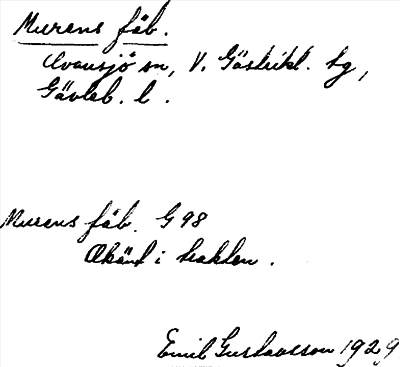 Murens fäb.
Ovansjö sn, V. Gästrikl. hg,
Gävleb. l.
Murens fäb. G 98
Okänt i trakten.
Emil Gustavsson 1929